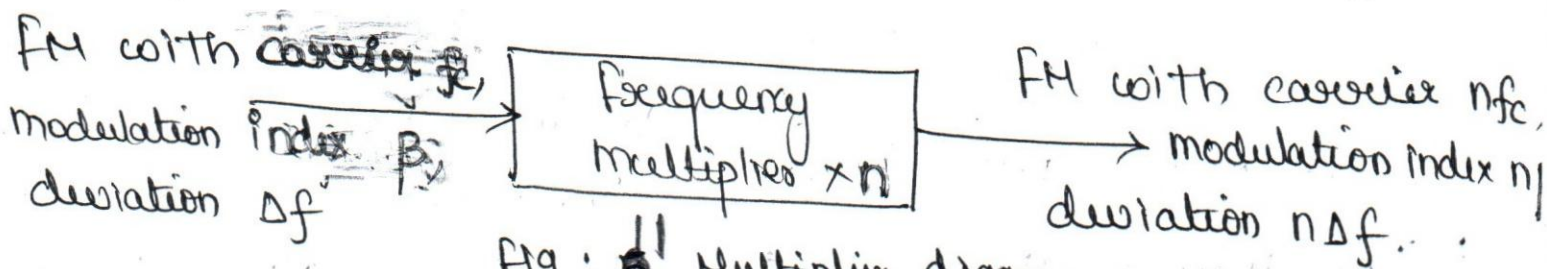 FM with carrier fc,
modulation index β,
deviation Δf
Frequency
multiplier ×n
FM with carrier nfc,
modulation index n
deviation nΔf.
Fig. 11 Multiplier